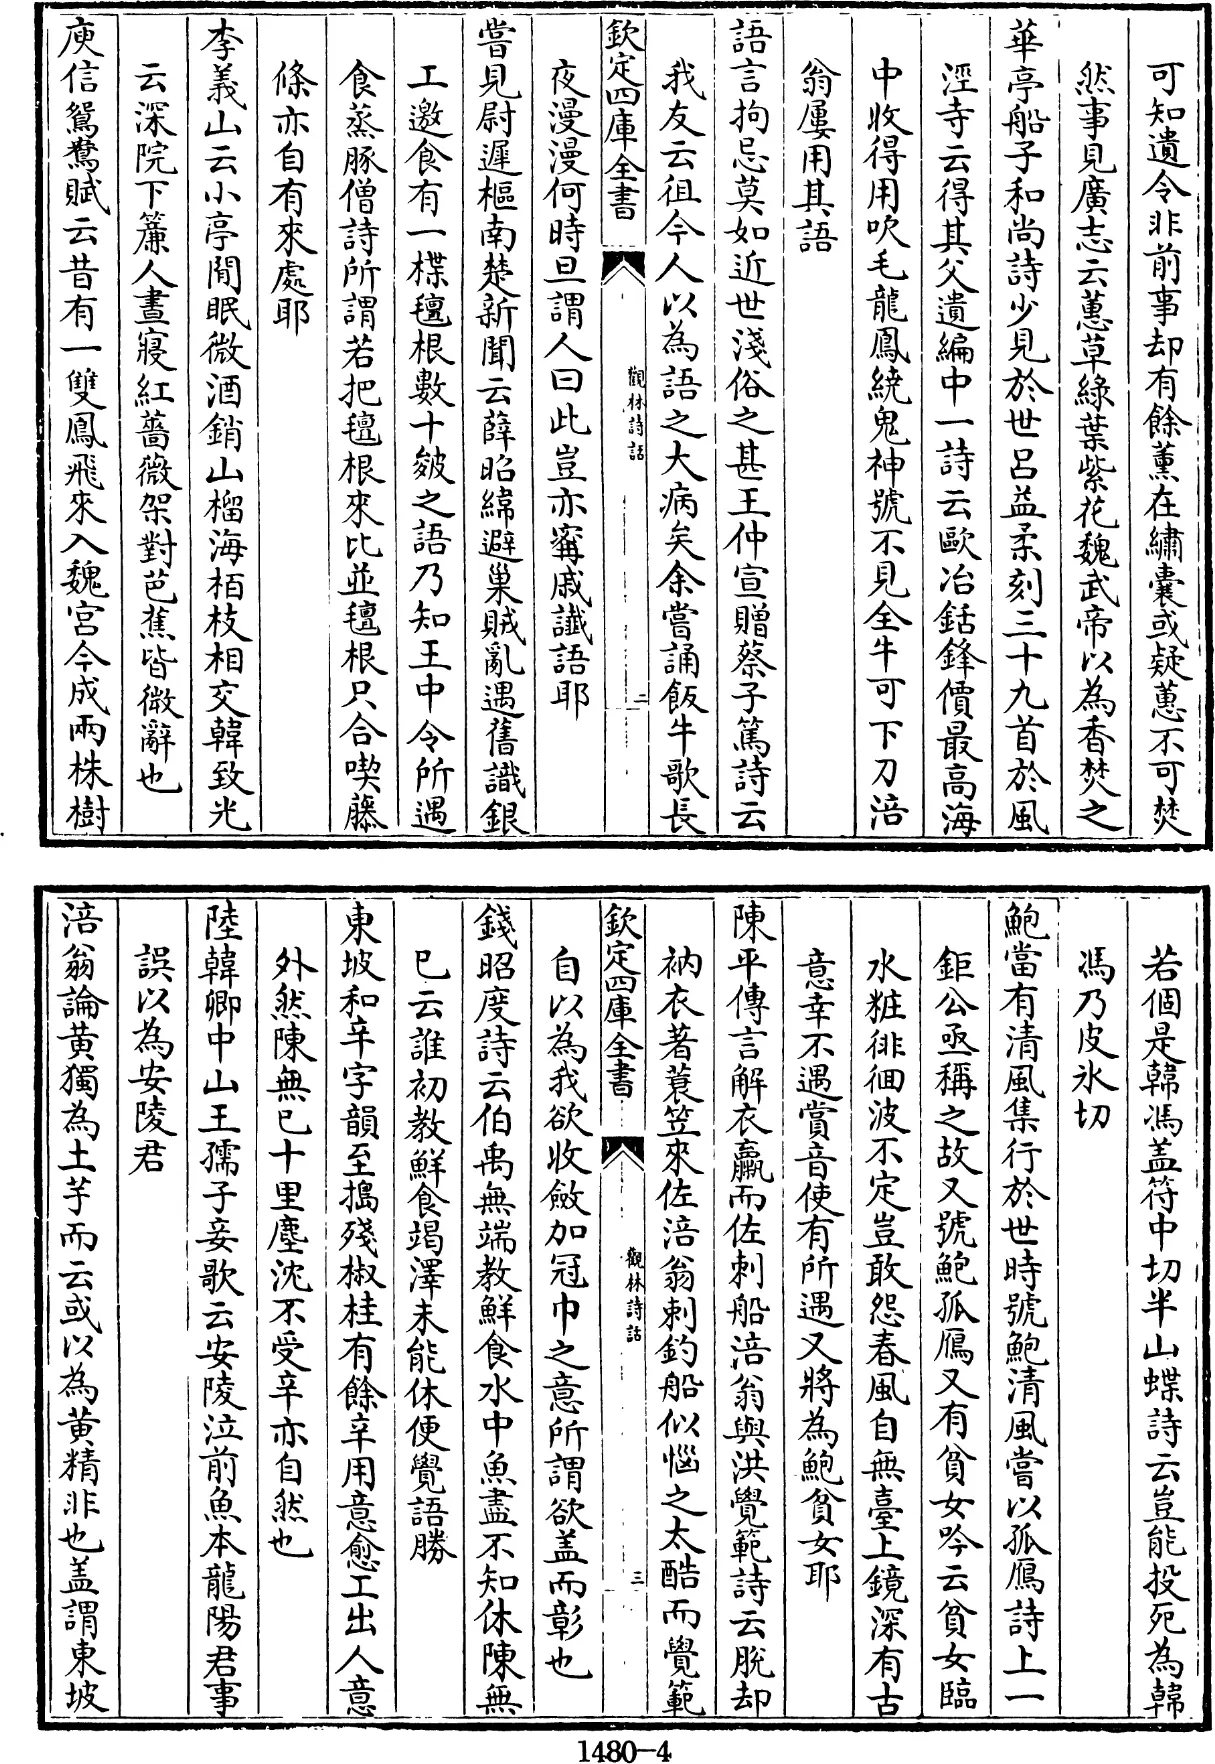 可知遺令非前事却有餘薰在繡囊或疑蕙不可焚
然事見廣志云蕙草綠葉紫花魏武帝以為香焚之
華亭船子和尚詩少見於世呂益柔刻三十九首於風
涇寺云得其父遺編中一詩云歐冶銛鋒價最高海
中收得用吹毛龍鳳繞鬼神號不見全牛可下刀涪
翁屢用其語
語言拘忌莫如近世淺俗之甚王仲宣贈蔡子篤詩云
我友云徂今人以為語之大病矣余嘗誦飯牛歌長
欽定四庫全書
觀林詩話
二
夜漫漫何時旦謂人曰此豈亦寗戚讖語耶
嘗見尉遲樞南楚新聞云薛昭緯避巢賊亂遇舊識銀
工邀食有一楪氊根數十皴之語乃知王中令所遇
食蒸豚僧詩所謂若把氊根來比並氊根只合喫藤
條亦自有來處耶
李義山云小亭閒眠微酒銷山榴海栢枝相交韓致光
云深院下簾人晝寢紅薔薇架對芭蕉皆微辭也
庾信鴛鴦賦云昔有一雙鳳飛來入魏宮今成兩株樹
若個是韓馮盖符中切半山蝶詩云豈能投死為韓
馮乃皮氷切
鮑當有清風集行於世時號鮑清風嘗以孤鴈詩上一
鉅公亟稱之故又號鮑孤鴈又有貧女吟云貧女臨
水粧徘徊波不定豈敢怨春風自無臺上鏡深有古
意幸不遇賞音使有所遇又將為鮑貧女耶
陳平傳言解衣羸而佐刺船涪翁與洪覺範詩云脫却
衲衣著蓑笠來佐涪翁刺釣船似惱之太酷而覺範
欽定四庫全書
觀林詩話
三
自以為我欲收斂加冠巾之意所謂欲盖而彰也
錢昭度詩云伯禹無端教鮮食水中魚盡不知休陳無
已云誰初教鮮食竭澤未能休便覺語勝
東坡和辛字韻至搗殘椒桂有餘辛用意愈工出人意
外然陳無已十里塵沈不受辛亦自然也
陸韓卿中山王孺子妾歌云安陵泣前魚本龍陽君事
誤以為安陵君
涪翁論黄獨為土芋而云或以為黄精非也盖謂東坡
1480-4